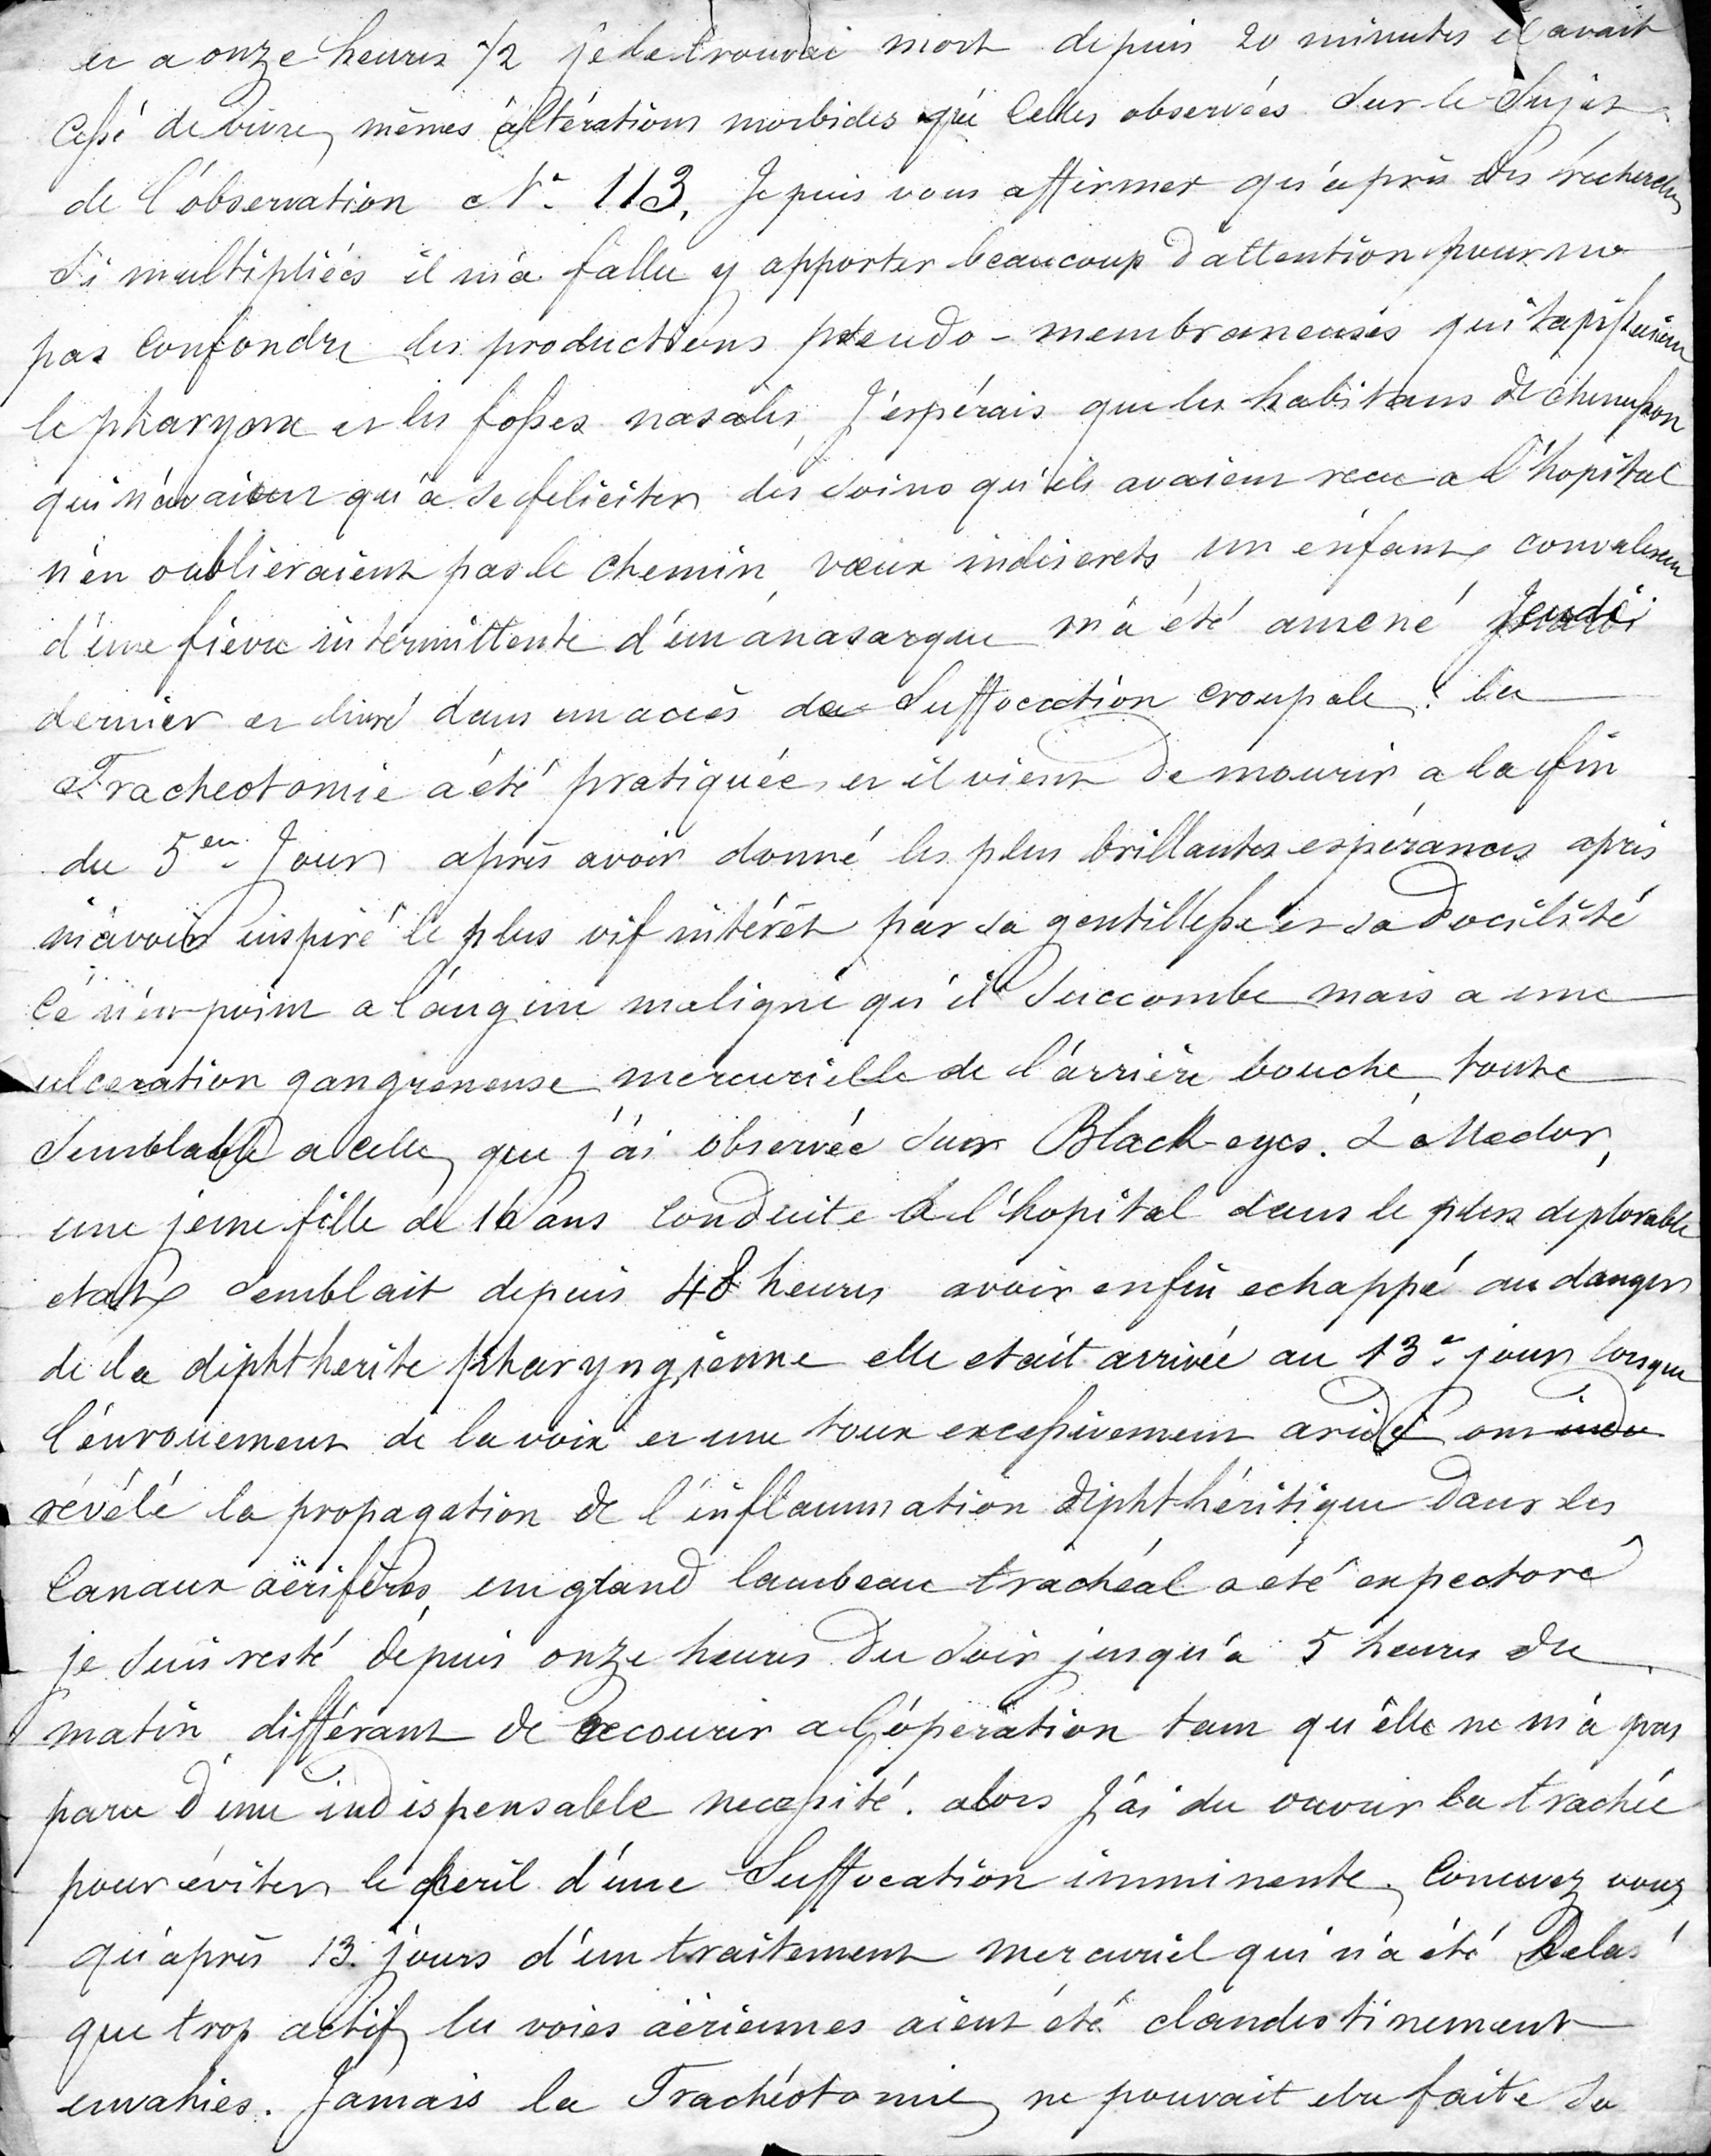 et a onze heures 1/2 je le trouvai mort depuis 20 minutes il avait
Cessé de vivre, mêmes altérations morbides que Celles observées Sur le Sujet
de l'observation N° 113. Je puis vous affirmer qu'après des recherches
Si multipliées il m'a fallu y apporter beaucoup d'attention pour ne
pas Confondre les productions pseudo-membraneuses qui tapissaient
le pharynx et les fosses nasales, J'espérais que les habitans de chenusson
qui n'avaient qu'a se feliciter des soins qu'ils avaient recu a l'hopital
n'en oublieraient pas le chemin, vœux indiscrets un enfant convalescent
d'une fievre intermittente d'un anasarque m'a été amené Jeudi
dernier et livré dans un accès de Suffocation croupale. la
Tracheotomie a été pratiquée, et il vient de mourir a la fin
du 5en Jour après avoir donné les plus brillantes espérances après
m'avoir inspiré le plus vif intérêt par sa gentillesse et sa docilité
Ce n'est point a l'angine maligne qu'il Succombe mais a une
ulceration gangreneuse mercurielle de l'arrière bouche toute
Semblable a celle que j'ai observée Sur Black-eyes. à Medor,
une jeune fille de 16 ans Conduite a l'hopital dans le plus deplorable
etat Semblait depuis 48 heures avoir enfin echappé au danger
de la diphtherite pharyngienne elle etait arrivée au 13e jour lorsque
l'enrouement de la voix et une toux excessivement aride ont indu
révélé la propagation de l'inflammation diphthéritique dans les
Canaux aërifères, un grand lambeau trachéal a été expectoré
je Suis resté depuis onze heures du Soir jusqu'a 5 heures du
matin différant de recourir a l'opération tant qu'elle ne m'a pas
paru d'une indispensable necessité. alors J'ai du ouvrir la trachée
pour éviter le peril d'une Suffocation imminente. Concevez vous
qu'après 13 jours d'un traitement mercuriel qui n'a été helas
que trop actif les voies aëriennes aient été clandestinement
envahies. Jamais la Trachéotomie ne pouvait etre faite Su